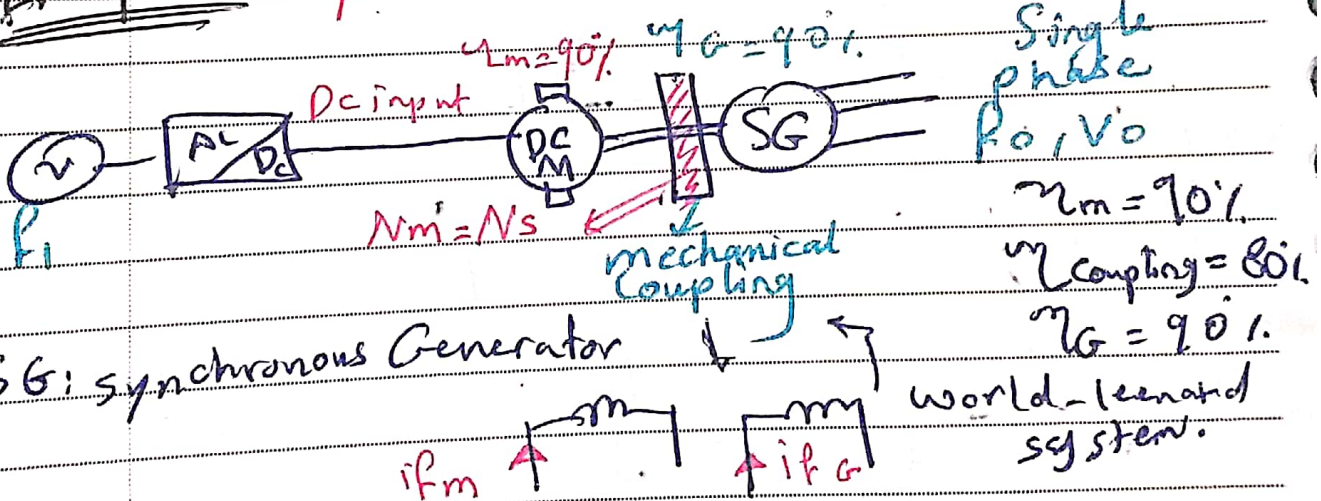 ηm=90%
ηG=90%
Single phase
fo, Vo
Dc input
AC
DC
DC M
SG
f1
Nm=Ns
mechanical Coupling
ηm=90%
ηcoupling=80%
ηG=90%.
SG: synchronous Generator
world-leenard system.
ifm
ifG